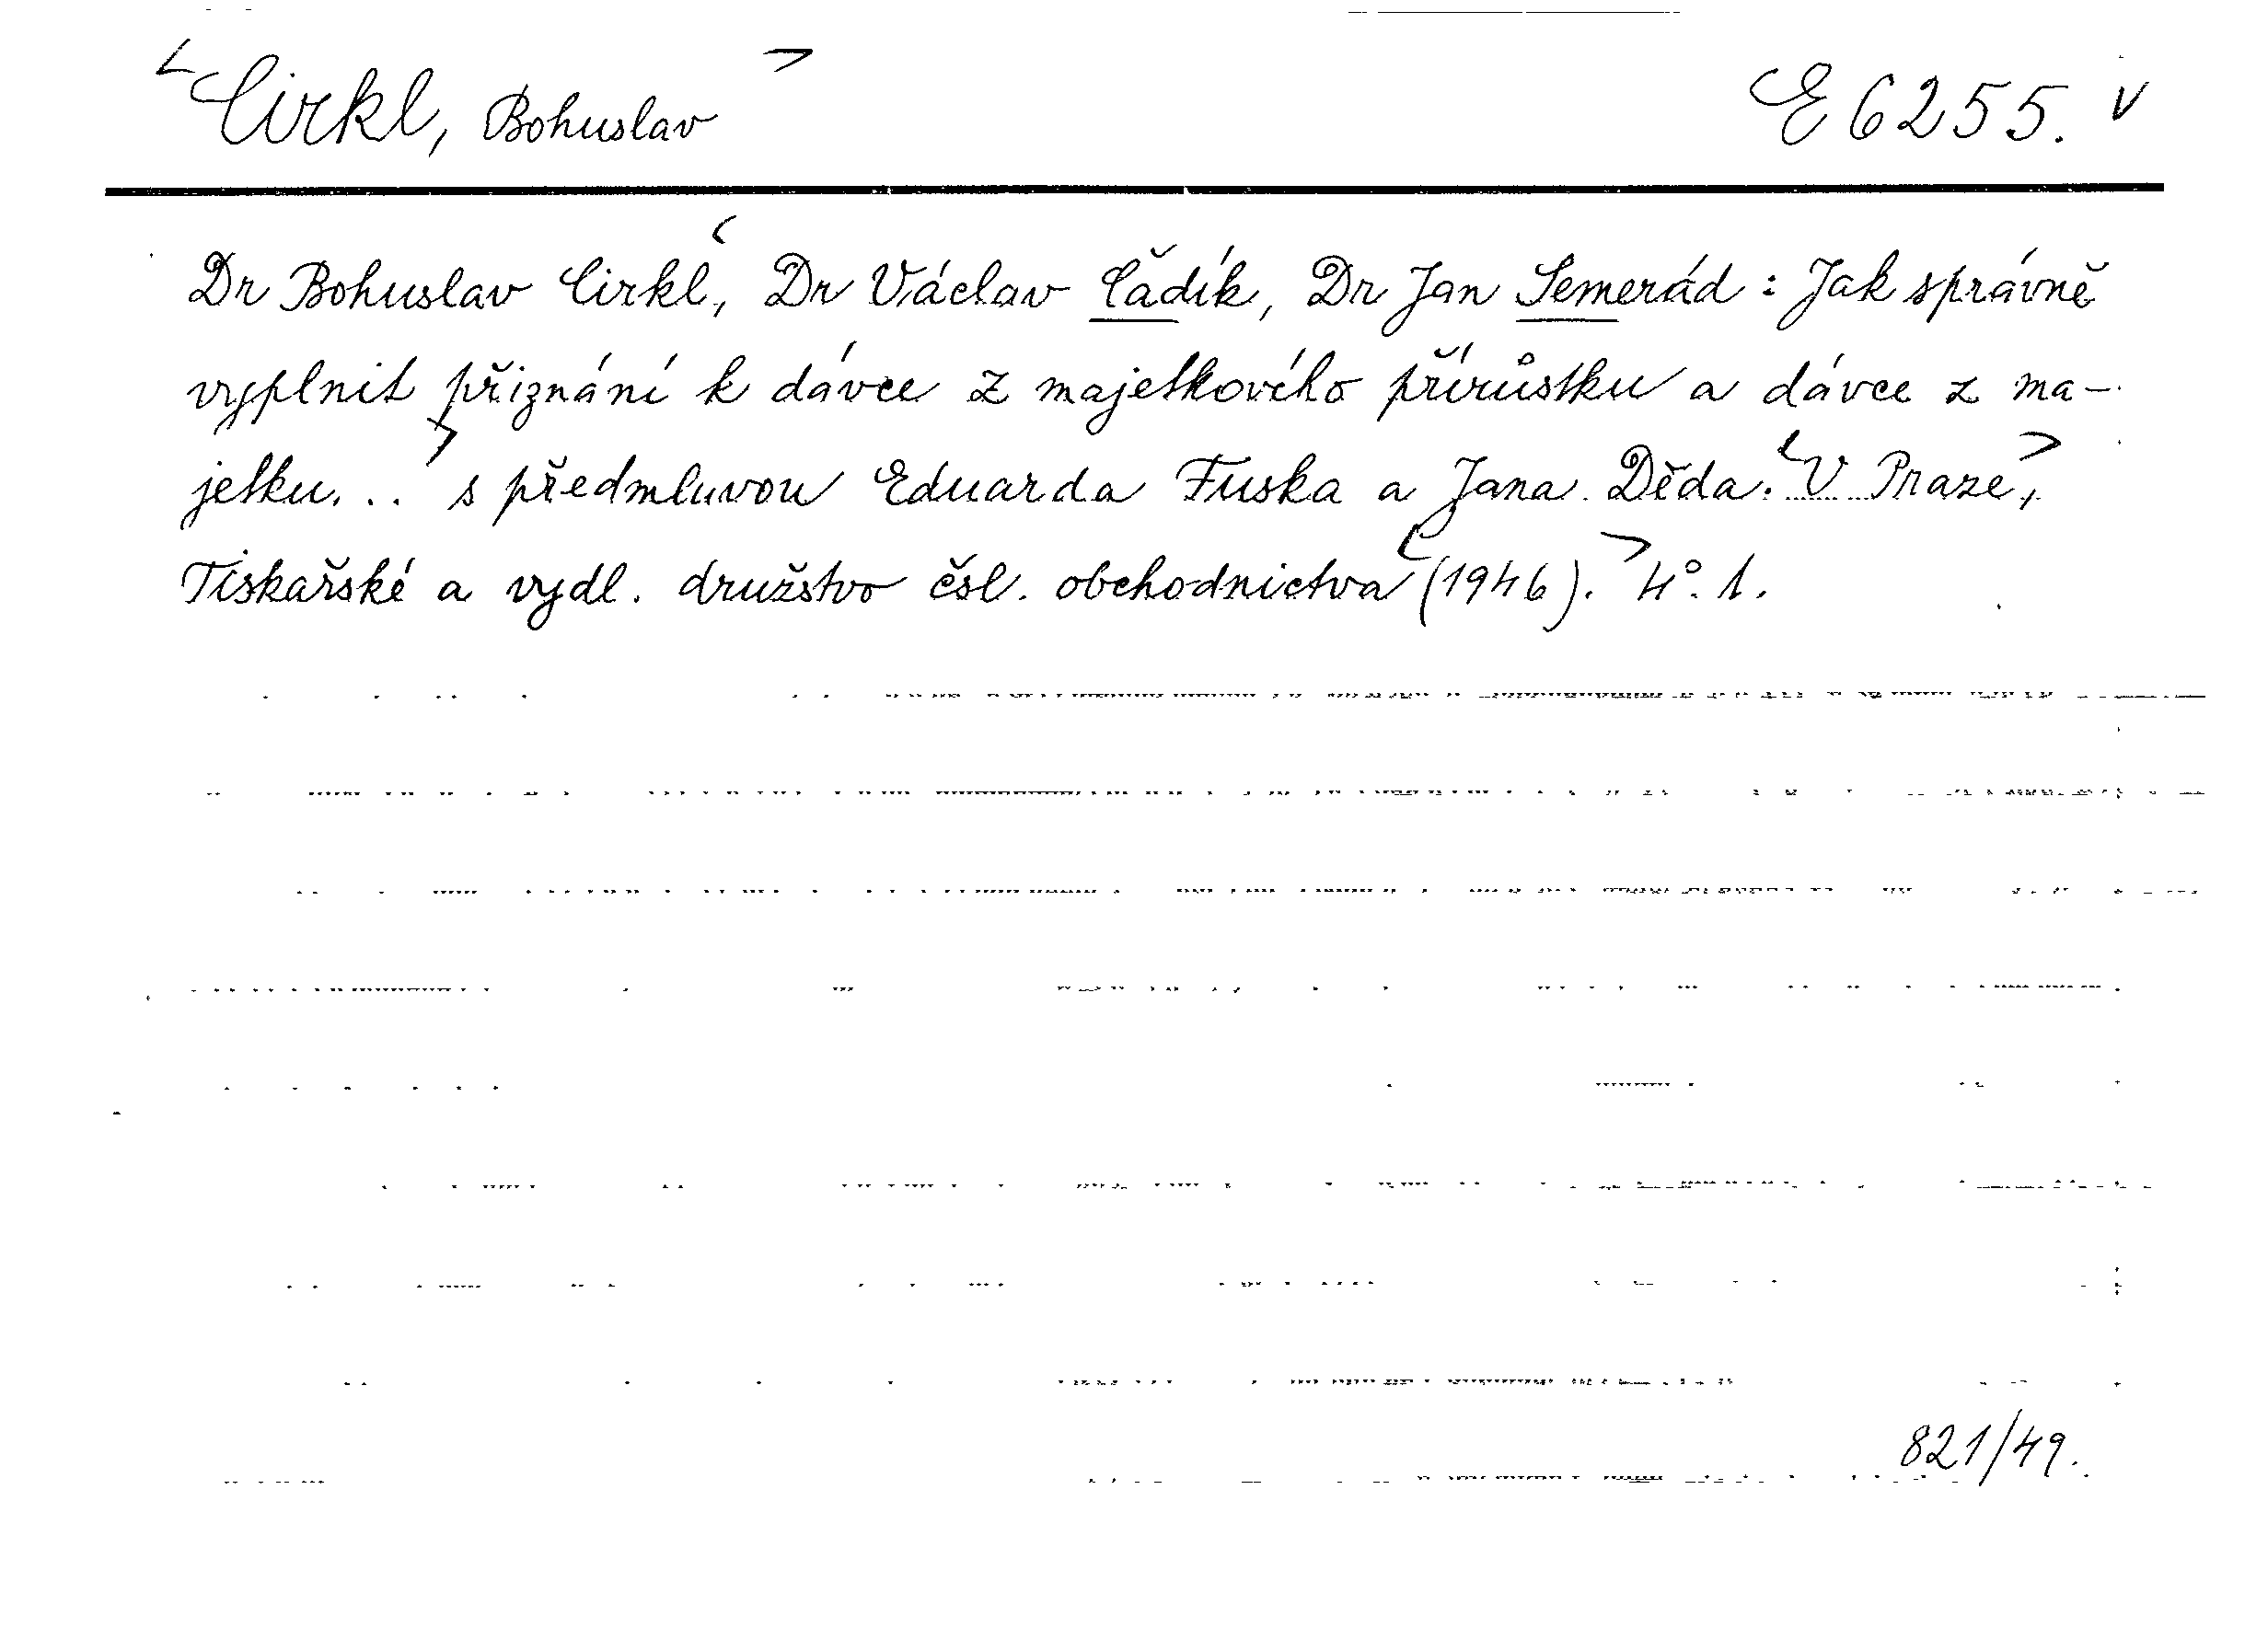 <Cirkl, Bohuslav> E 6255. v
Dr Bohuslav Cirkl, <Dr Václav Čadík, Dr Jan Semerád: Jak správně
vyplnit přiznání k dávce z majetkového přírůstku a dávce z ma-
jetku...> s předmluvou Eduarda Fuska a Jana Děda. <V Praze,>
Tiskařské a vydl. družstvo čsl. obchodnictva <(1946).> 4°. 1.
821/49.